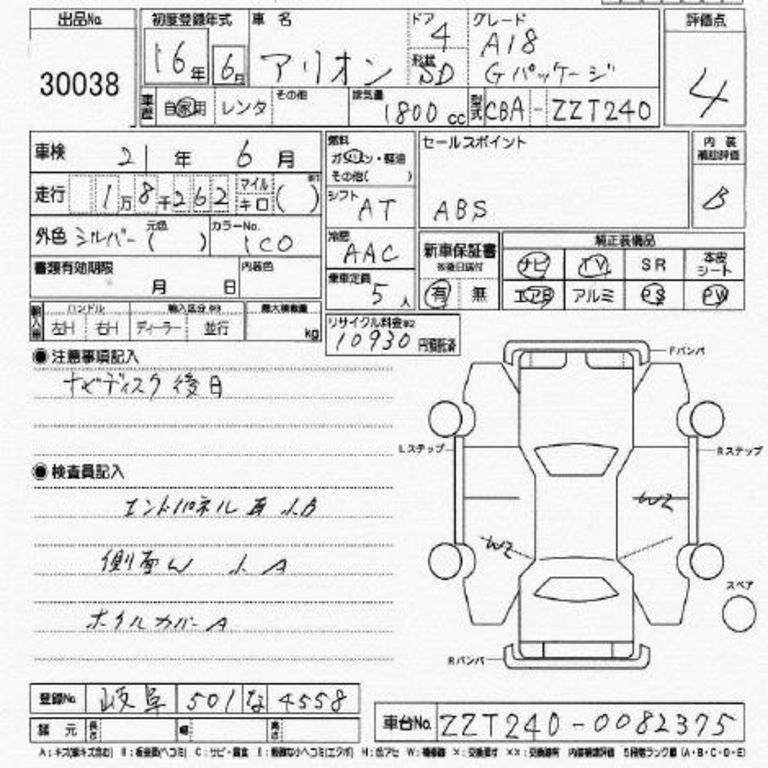 出品No. 初度登録年式 車名 ドア グレード 評価点
30038 16年 6月 アリオン 4 A18 4
形状 SD Gパッケージ
車歴 自家用 レンタ その他 排気量 1800cc 型式 CBA-ZZT240
車検 21年 6月 燃料 ガソリン・軽油 その他( ) セールスポイント 内装 補助評価
走行 1万8千262 マイル キロ ( ) シフト AT ABS B
外色 シルバー 元色( ) カラーNo. 1C0 冷房 AAC 新車保証書 ※後日送付 純正装備品
ナビ TV SR 本皮シート
書類有効期限 月 日 内装色 乗車定員 5人 有 無 エアB アルミ PS PW
輸入車 ハンドル 左H 右H 輸入区分 ディーラー 並行 最大積載量 kg リサイクル料金※2 10930 円預託済
●注意事項記入
ナビディスク後日
Fバンパ
Lステップ Rステップ
●検査員記入
エンドパネル 小B
W2
側面W 小A
W2
スペア
ホイルカバーA
Rバンパ
登録No. 岐阜 501 な 4558
諸元 長さ 幅 高さ 車台No. ZZT240-0082375